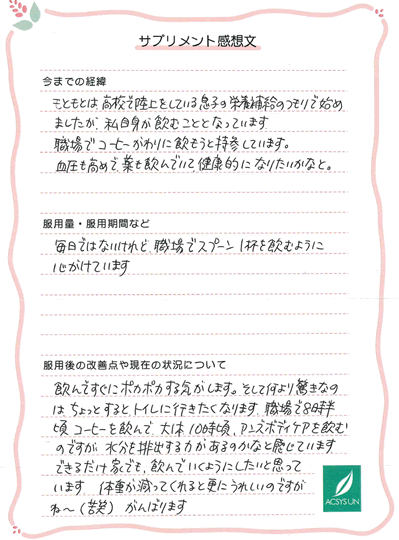 サプリメント感想文
今までの経緯
もともとは高校で陸上をしている息子の栄養補給のつもりで始め
ましたが、私自身が飲むこととなっています
職場でコーヒーがわりに飲もうと持参しています。
血圧も高めで、薬も飲んでいて、健康的になりたいかなと。
服用量・服用期間など
毎日ではないけれど、職場でスプーン1杯を飲むように
心がけています
服用後の改善点や現在の状況について
飲んですぐにポカポカする気がします。そして何より驚きなの
は、ちょっとすると、トイレに行きたくなります。職場で8時半
頃コーヒーを飲んで、大体10時頃、アンスボディケアを飲む
のですが、水分を排出する力があるのかなと感じています
できるだけ家でも、飲んでいくようにしたいと思って
います 体重が減ってくれると更にうれしいのですが
ね〜(苦笑) がんばります
ACSYSUN